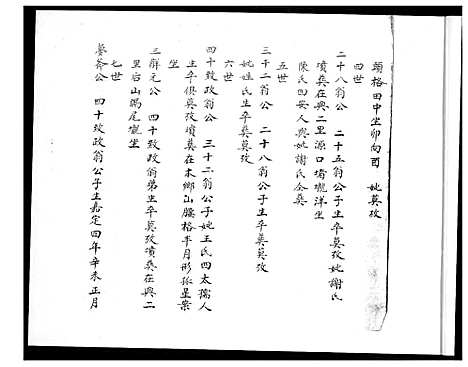 頭格田中坐卯向酉　妣莫攷
四世
二十八翁公　二十五翁公子生卒莫攷妣謝氏
墳葬在興二里源口壻壠洋坐
陳氏四安人與妣謝氏仝葬
五世
三十二翁公　二十八翁公子生卒葬莫攷
妣姓氏生卒葬莫攷
六世
四十致政翁公　三十二翁公子妣王氏四太孺人
生卒俱莫攷墳葬在本鄉山腰格半月形孤星案
坐
三辭元公　四十致政翁弟生卒莫攷墳葬在興二
里岩山鴟尾壠坐
七世
菴公　四十致政翁公子生嘉定四年辛未正月